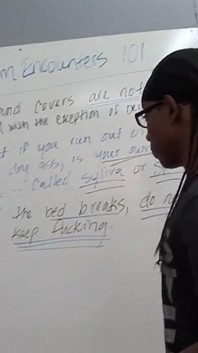 Encounters 101
und covers are not
with the exception of
if you run out of
any ass, is your
called Syliva or S
the bed breaks, do n
keep fucking.